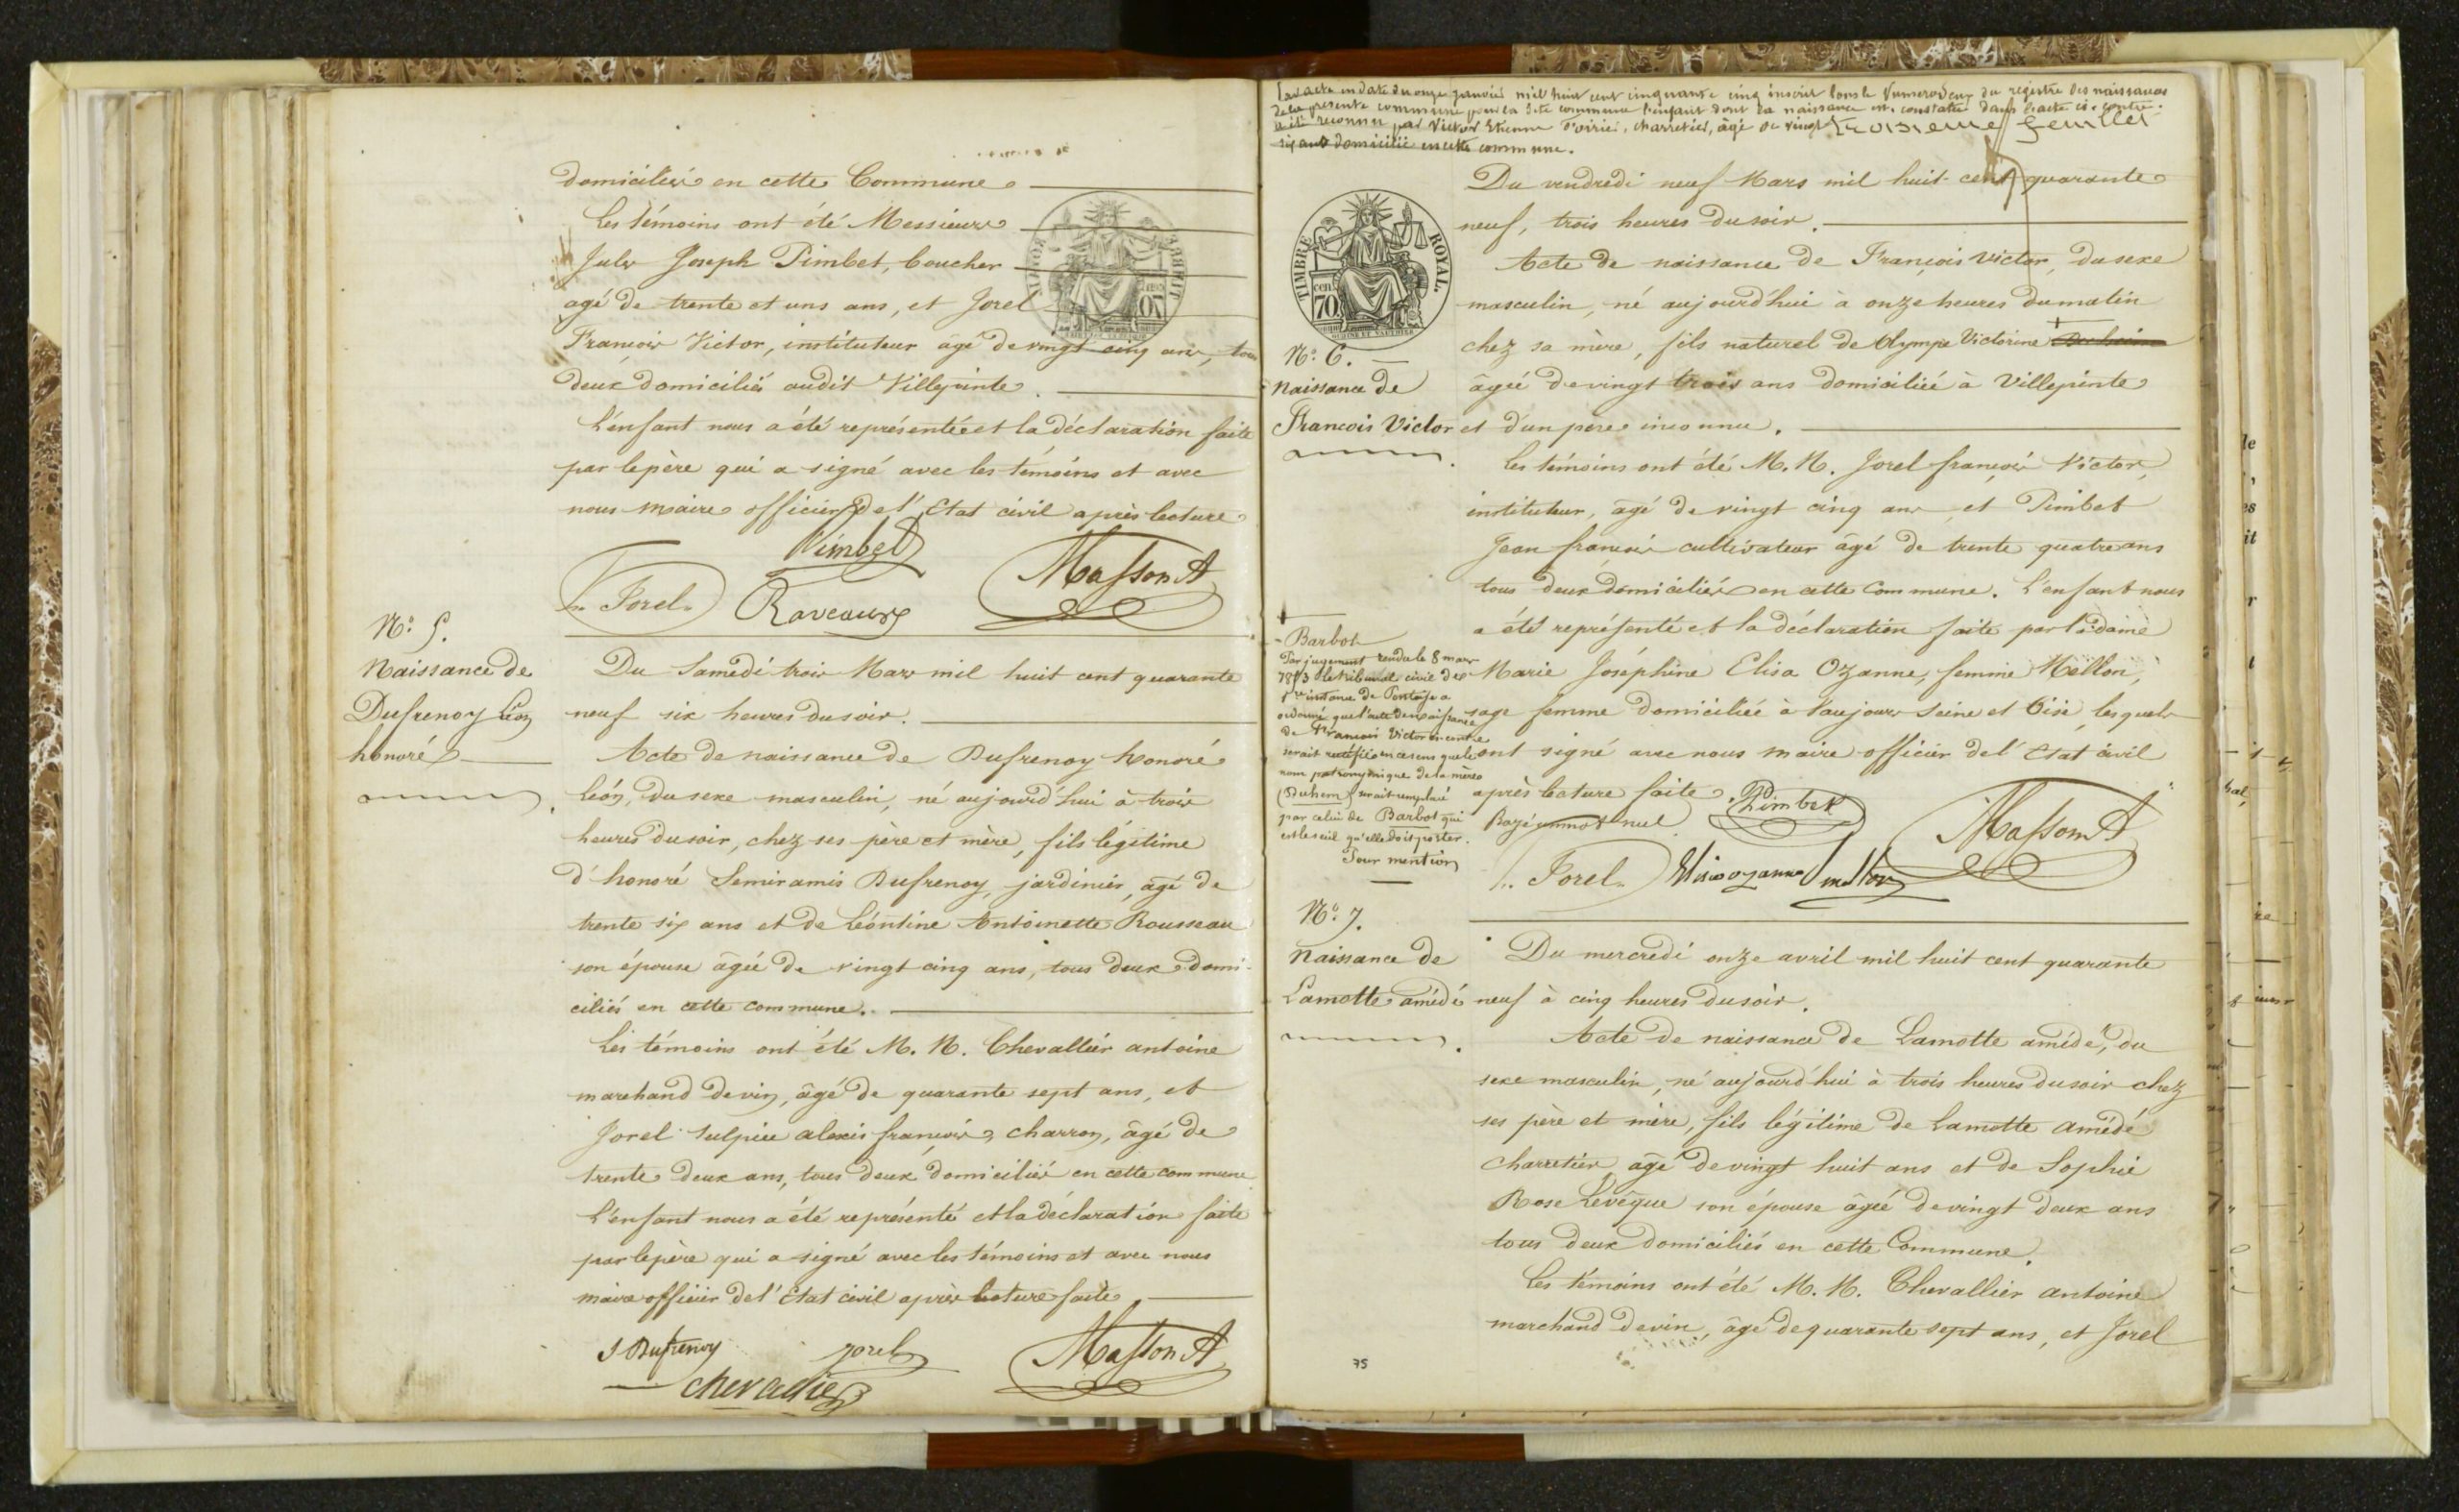 domiciliés en cette Commune
Les témoins ont été Messieurs
Jules Joseph Pimbet, boucher
agé de trente et uns ans, et Jorel
François Victor, instituteur agé de vingt cinq ans, tous
deux domiciliés audit Villepinte.
L'énfant nous a été représentée et la déclaration faite
par le père qui a signé avec les témoins et avec
nous maire officier de l'Etat civil après lecture
Pimbet
Jorel Raveaux Masson A
N° 5.
Naissance de
Dufrenoy Léon
honoré
Du Samedi trois Mars mil huit cent quarante
neuf six heures du soir.
Acte de naissance de Dufrenoy honoré
Léon, du sexe masculin, né aujourd'hui à trois
heures du soir, chez ses père et mère, fils légitime
d'honoré Semiramis Dufrenoy, jardinier, agé de
trente six ans et de Léontine Antoinette Rousseau
son épouse âgée de vingt cinq ans, tous deux domi-
ciliés en cette commune.
Les témoins ont été M. M. Chevallier antoine
marchand de vin, âgé de quarante sept ans, et
Jorel Sulpice alexis françois, charron, âgé de
trente deux ans, tous deux domiciliés en cette commune
L'enfant nous a été représenté et la déclaration faite
par le père qui a signé avec les témoins et avec nous
maire officier de l'Etat civil après lecture faite
Dufrenoy Jorel Masson A
chevallier
Par acte en date du onze janvier mil huit cent cinquante cinq inscrit sous le numero deux du registre des naissances
de la presente commune pour la dite commune l'enfant dont la naissance est constatée dans l'acte ci-contre
a été reconnu par Victor Etienne Poirié, charretier, âgé de vingt
six ans domicilié en cette commune.
troisieme feuillet
TIMBRE ROYAL.
70
Du vendredi neuf Mars mil huit cent quarante
neuf, trois heures du soir.
Acte de naissance de François Victor, du sexe
masculin, né aujourd'hui à onze heures du matin
chez sa mère, fils naturel de Olympe Victorine
âgée de vingt trois ans domiciliée à Villepinte
et d'un père inconnu.
N° 6.
Naissance de
François Victor
Les témoins ont été M. M. Jorel françois Victor,
instituteur, agé de vingt cinq ans et Pimbet
Jean françois cultivateur âgé de trente quatre ans
tous deux domiciliés en cette Commune. L'enfant nous
a été représenté et la déclaration faite par la dame
Marie Joséphine Elisa Ozanne, femme Mellon,
sage femme domiciliée à Vaujours Seine et Oise, lesquels
ont signé avec nous maire officier de l'Etat civil
après lecture faite.
Barbot
Par jugement rendu le 8 mars
1873 le tribunal civil de
1re instance de Pontoise a
ordonné que l'acte de naissance
de François Victor ci-contre
serait rectifié en ce sens que le
nom patronymique de la mère
(Duhem) serait remplacé
par celui de Barbot qui
est le seul qu'elle doit porter.
Pour mention
Rayé un mot nul Pimbet
Jorel Elisa ozanne mellon Masson A
N° 7.
Naissance de
Lamotte amédé
Du mercredi onze avril mil huit cent quarante
neuf à cinq heures du soir.
Acte de naissance de Lamotte amédé, du
sexe masculin, né aujourd'hui à trois heures du soir chez
ses père et mère, fils légitime de Lamotte Amédé
charretier, agé de vingt huit ans et de Sophie
Rose Levêque son épouse âgée de vingt deux ans
tous deux domiciliés en cette Commune.
Les témoins ont été M. M. Chevallier antoine
marchand de vin, âgé de quarante sept ans, et Jorel
75